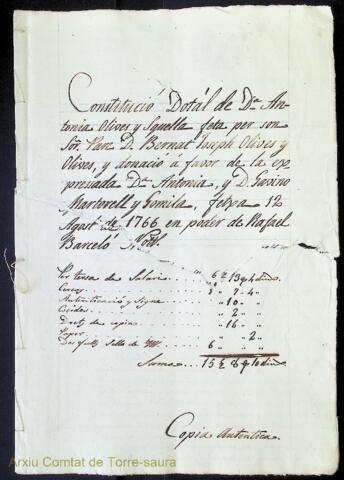 Constitució Dotál de Dª An-
tonia Olives y Squella feta per son
Sor. Pare D. Bernat Joseph Olives y
Olives, y donació á favor de la ex-
presada Dª Antonia, y D. Gavino
Martorell y Gomila, fetxa 12
Agost de 1766 en poder de Rafael
Barceló Notri
Per tersa de Salari .... 6 £ 13 § 4 din.
.... 7 .. 4 ..
Autenticació y Signe .... 10 ..
.... 2 ..
Dret de copia .... 16 ..
Paper .... 2 ..
Dos fulls Sello de .... 6 ..
Suma .. 15 £ 8 § 10 din.
Copia Autentica.
Arxiu Comtat de Torre-saura